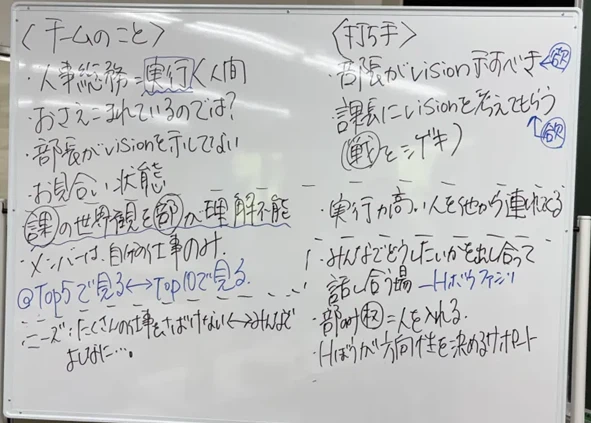 〈チームのこと〉
・人事総務=実行く人間
・おさえこまれているのでは?
・部長がvisionを示してない
・お見合い状態
課の世界観を部が理解不能
・メンバーは、自分の仕事のみ.
@Top5で見る↔Top10で見る.
ニーズ:たくさんの仕事をさばけない↔みんなで
よしなに….
〈打ち手〉
・部長がvision示すべき←欲
・課長にvisionを考えてもらう
↑欲
(戦をシゲキ)
・実行力高い人を他から連れてくる
・みんなでどうしたいかを出し合って
話し合う場
・部付=人を入れる.
・Hぼうが方向性を決めるサポート